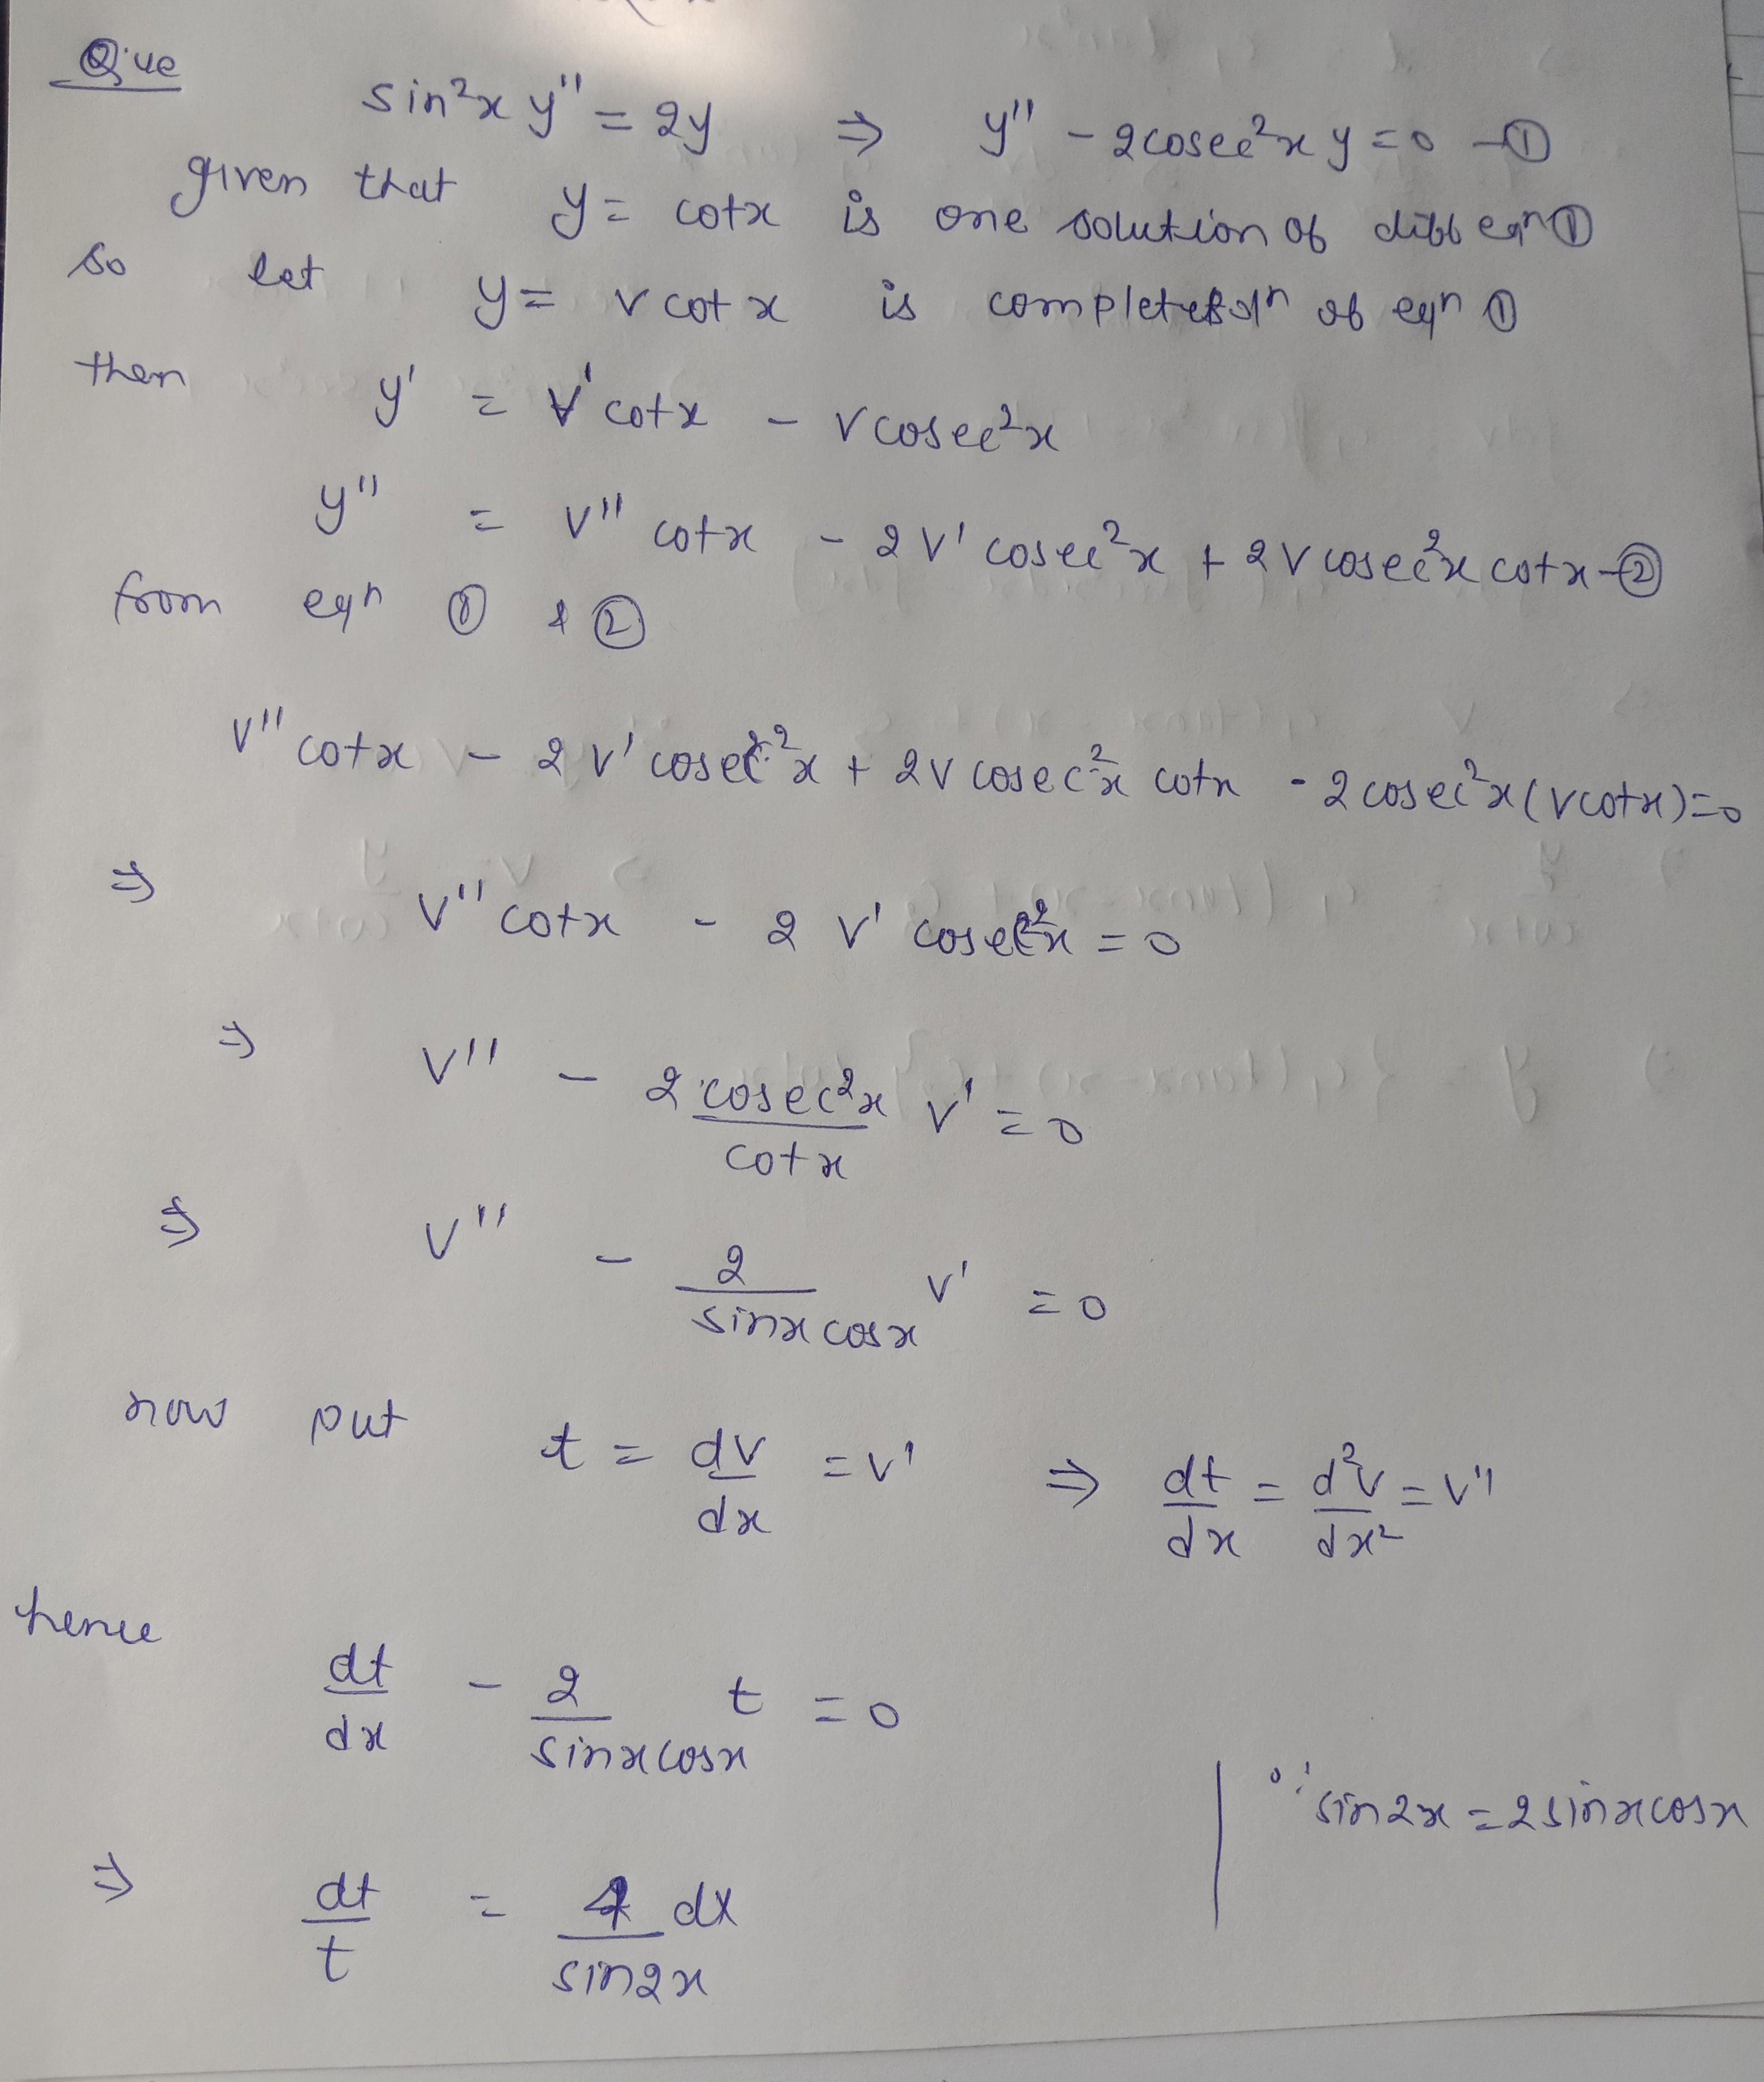 Que
sin²x y'' = 2y ⇒ y'' - 2cosec²x y = 0 -①
given that y = cotx is one solution of diff eqn ①
so let y = v cot x is complete soln of eqn ①
then y' = v' cotx - v cosec²x
y'' = v'' cotx - 2v' cosec²x + 2v cosec²x cotx -②
from eqn ① & ②
v'' cotx - 2v' cosec²x + 2v cosec²x cotx - 2cosec²x (v cotx) = 0
⇒ v'' cotx - 2 v' cosec²x = 0
⇒ v'' - 2cosec²x/cotx v' = 0
⇒ v'' - 2/sinx cosx v' = 0
now put t = dv/dx = v' ⇒ dt/dx = d²v/dx² = v''
hence
dt/dx - 2/sinx cosx t = 0
∵ sin2x = 2sinx cosx
⇒ dt/t = 4/sin2x dx